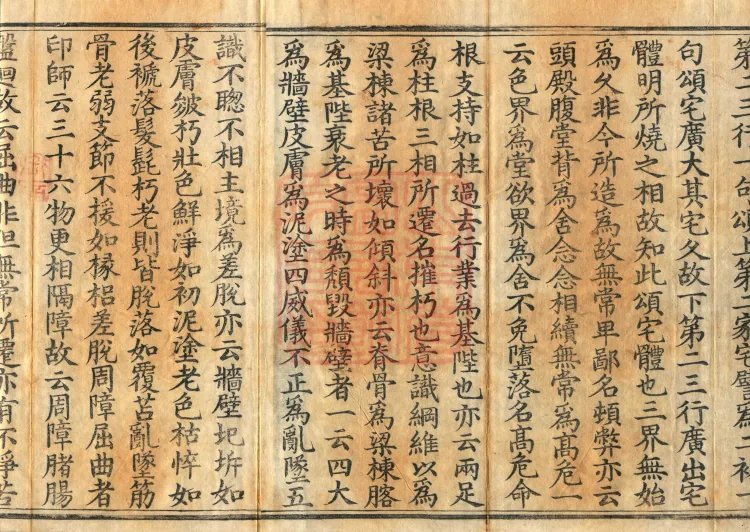 句頌宅廣大其宅久故下第二三行廣出宅
體明所燒之相故知此頌宅體也三界無始
爲久非今所造爲故無常卑鄙名頓弊亦云
頭殿腹堂背爲舍念念相續無常爲髙危一
云色界爲堂欲界爲舍不免墮落名髙危命
根支持如柱過去行業爲基陛也亦云兩足
爲柱根三相所遷名摧朽也意識綱維以爲
梁棟諸苦所壞如傾斜亦云脊骨爲梁棟髂
爲基陛衰老之時爲頹毀牆壁者一云四大
爲牆壁皮膚爲泥塗四威儀不正爲亂墜五
識不聦不相主境爲差脫亦云牆壁圯坼如
皮膚皴朽壯色鮮淨如初泥塗老色枯悴如
後褫落髮髭朽老則皆脫落如覆苫亂墜筋
骨老弱支節不援如椽梠差脫周障屈曲者
印師云三十六物更相隔障故云周障腸
盤迴故云屈曲非但無常所遷亦有不淨苦